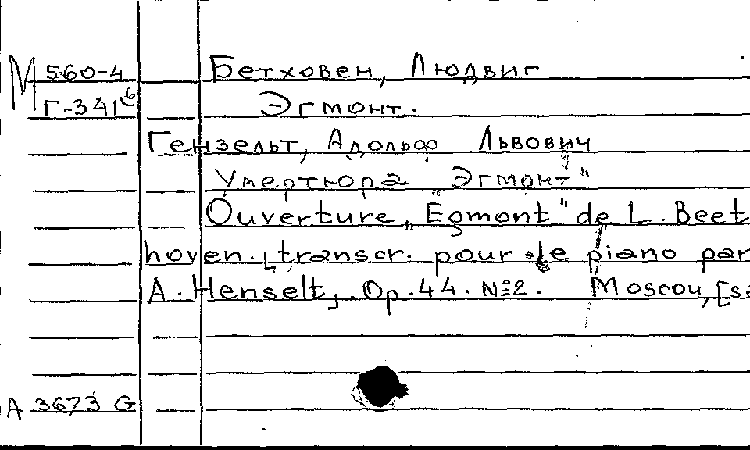 М 560-4 Бетховен, Людвиг
Г-341б Эгмонт.
Гензельт, Адольф Львович
Увертюра "Эгмонт"
Ouverture „Egmont" de L. Beet
hoven. transcr. pour le piano par
A. Henselt, Op. 44. №2. Moscou,
A 3673 G